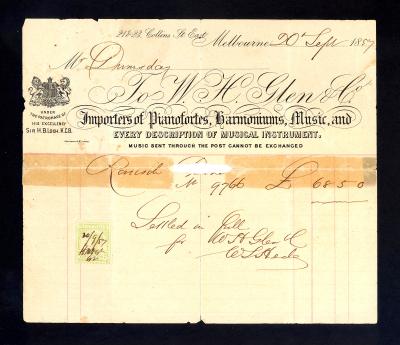 21 & 23, Collins St. East,
Melbourne 20th Sept 1887
Mr Dunsday
To W. H. Glen & Co.
UNDER
THE PATRONAGE OF
HIS EXCELLENCY
SIR H. B. LOCH, K.C.B.
Importers of Pianofortes, Harmoniums, Music, and
EVERY DESCRIPTION OF MUSICAL INSTRUMENT.
MUSIC SENT THROUGH THE POST CANNOT BE EXCHANGED
Ronisch Piano
No 9766 £ 68 5 0
Settled in full
for W H Glen & Co
20/9/87